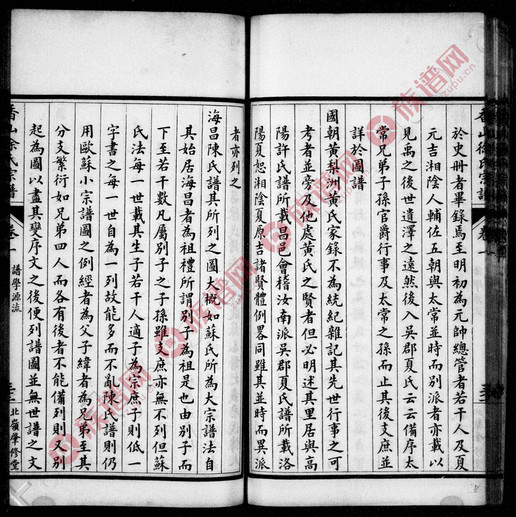 於史冊者畢錄焉至明初為元帥總管者若干人及夏
元吉湘陰人輔佐五朝與太常並時而別派者亦載以
見禹之後世遺澤之遠然後入吳郡夏氏云云備序太
常兄弟子孫官爵行事及太常之孫而止其後支庶並
詳於圖譜
國朝黃梨洲黃氏家錄不為統紀雜記其先世行事之可
考者並旁及他處黃氏之賢者但必明述其里居與高
陽許氏譜所載昌邑會稽汝南派吳郡夏氏譜所載洛
陽夏恕湘陰夏原吉諸賢體例畧同雖其並時而異派
者亦列之
海昌陳氏譜其所列之圖大概如蘇氏所為大宗譜法自
其始居海昌者為祖禮所謂別子為祖是也由別子而
下至若干數凡屬別子之子孫雖支庶亦無不列但蘇
氏法每一世載其生子若干人適子為宗庶子則低一
字書之每一世自為一列故能多而不亂陳氏譜則仍
用歐蘇小宗譜圖之例經者為父子緯者為兄弟至其
分支繁衍如兄弟四人而各有後者不能備列則又別
起為圖以盡其變序文之後便列譜圖並無世譜之文
香山徐氏宗譜
卷一
譜學源流
北嶺肇修堂
香山徐氏宗譜
族谱网